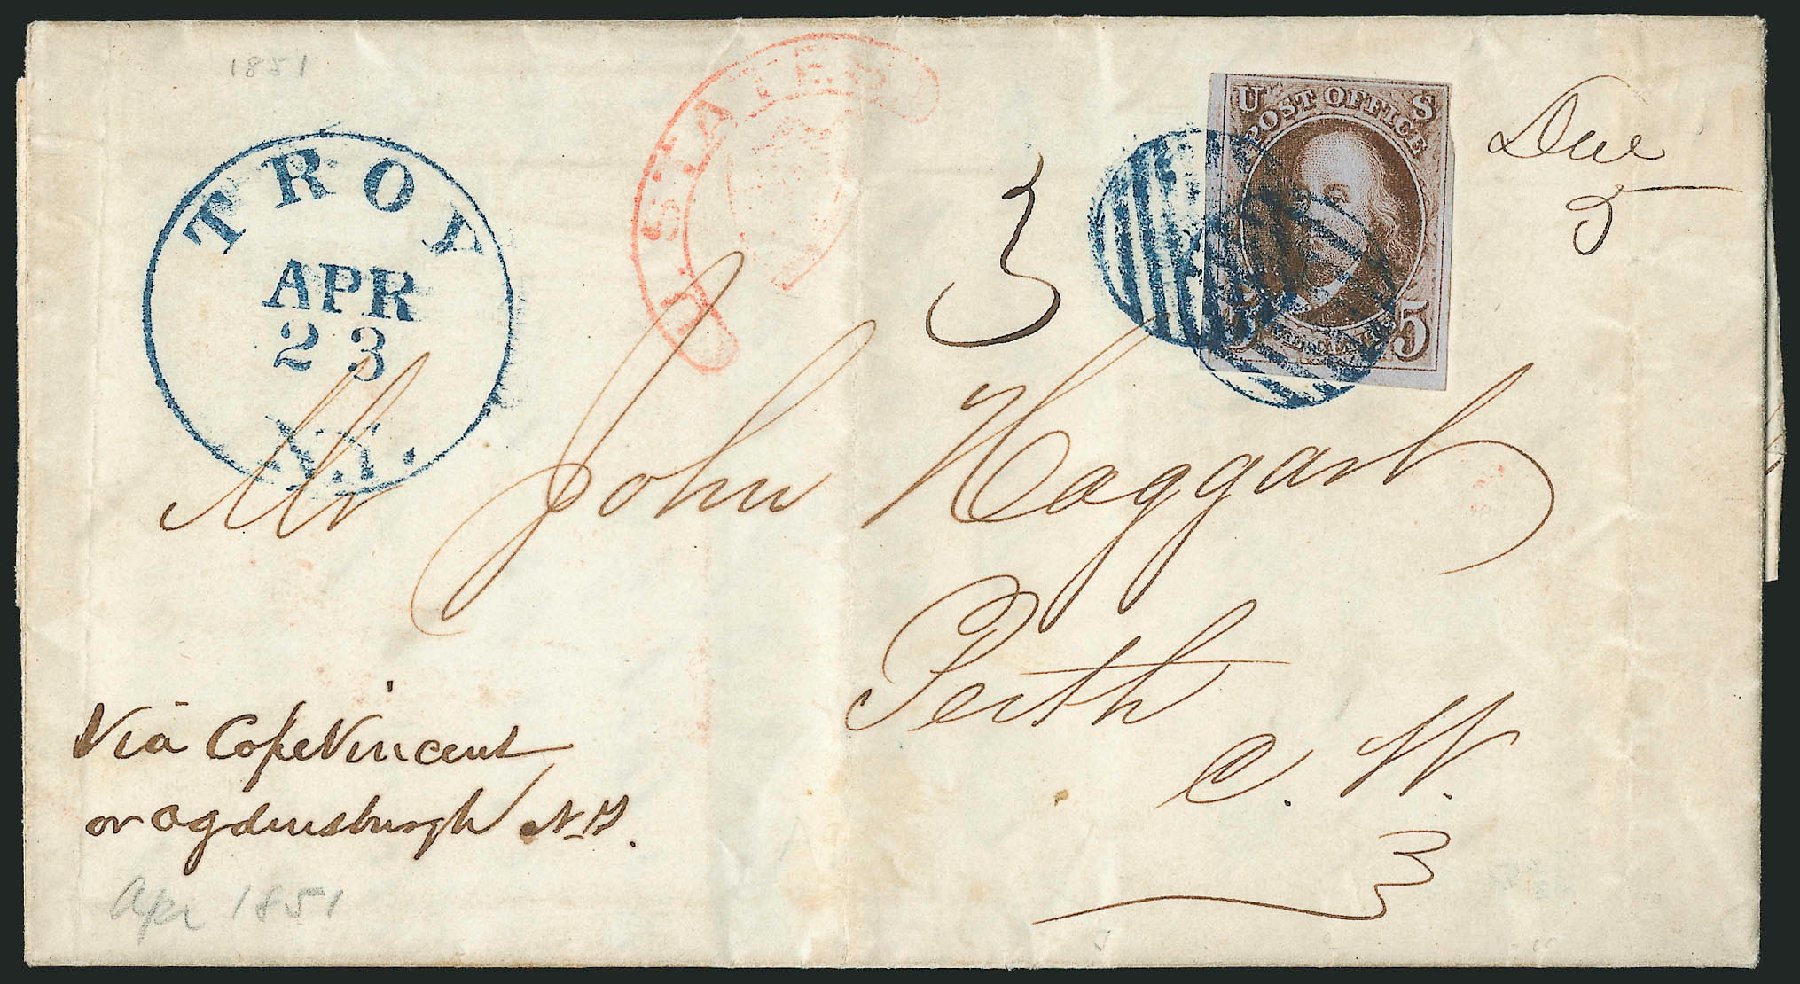 1851
TROY
APR
23
N.Y.
U. STATES
3
U S
POST OFFICE
5 5
Due
5
Mr John Haggart
Perth
C. W.
Via Cape Vincent
or Ogdensburgh N.Y.
Apr 1851